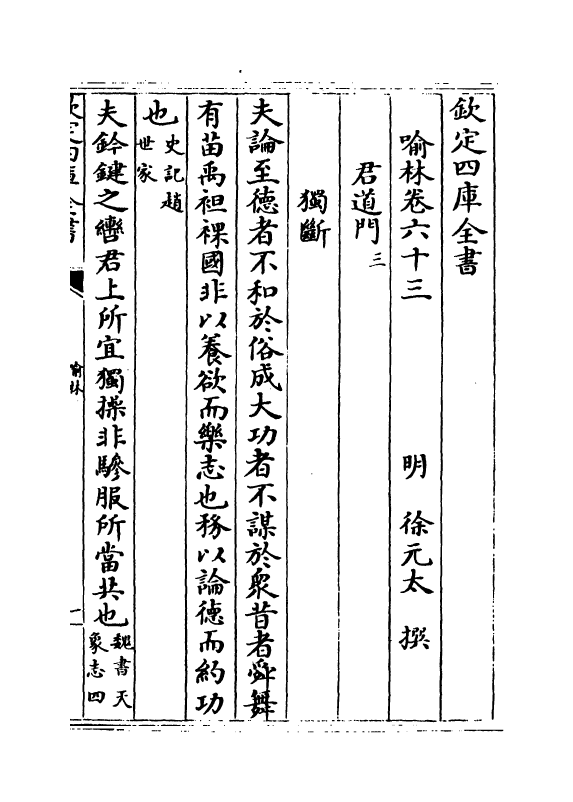 欽定四庫全書
喻林卷六十三 明 徐元太 撰
君道門三
獨斷
夫論至德者不和於俗成大功者不謀於衆昔者舜舞
有苗禹袒裸國非以養欲而樂志也務以論德而約功
也史記趙世家
夫鈐鍵之轡君上所宜獨操非驂服所當共也魏書天象志四
欽定四庫全書
喻林
一